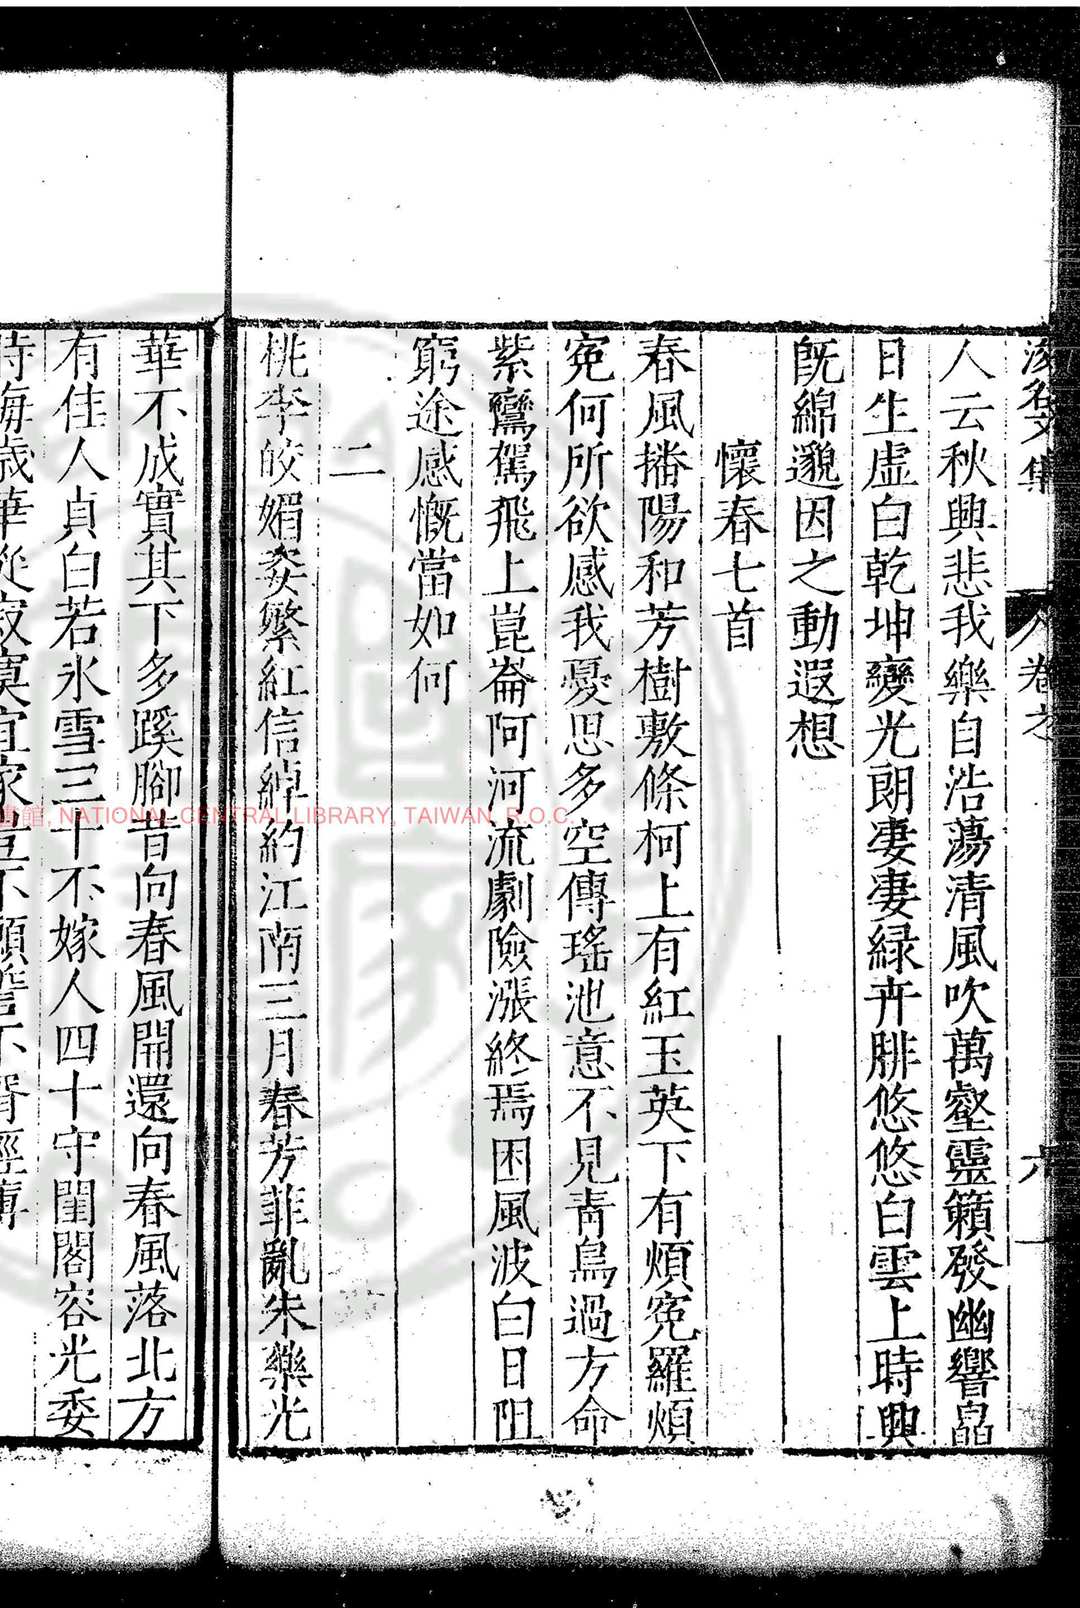 人云秋興悲我樂自浩蕩清風吹萬壑靈籟發幽響皛
日生虛白乾坤變光朗凄凄緑卉腓悠悠白雲上時興
旣綿邈因之動遐想
懷春七首
春風播陽和芳樹敷條柯上有紅玉英下有煩寃羅煩
寃何所欲感我憂思多空傳瑤池意不見靑鳥過方命
紫鸞駕飛上崑崙阿河流劇險漲終焉困風波白日阻
窮途感慨當如何
二
桃李皎媚姿繁紅信綽約江南三月春芳菲亂朱藥光
華不成實其下多蹊腳昔向春風開還向春風落北方
有佳人貞白若氷雪三十不嫁人四十守閨閣容光委
歲華從寂寞宜家豈不願
NATIONAL CENTRAL LIBRARY, TAIWAN, R.O.C.